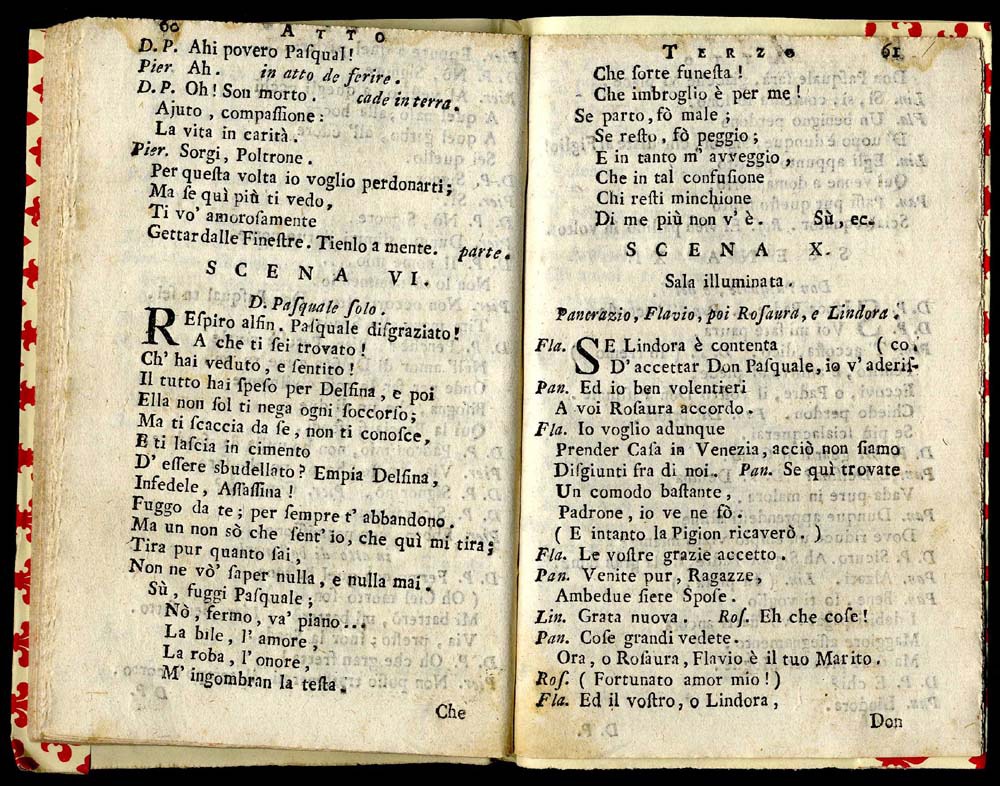 60 ATTO
D. P. Ahi povero Paſqual!
Pier. Ah. in atto de ferire.
D. P. Oh! Son morto. cade in terra.
Ajuto, compaſſione:
La vita in carità.
Pier. Sorgi, Poltrone.
Per queſta volta io voglio perdonarti;
Ma ſe quì più ti vedo,
Ti vo' amoroſamente
Gettar dalle Fineſtre. Tienlo a mente. parte.
SCENA VI.
D. Paſquale ſolo.
REſpiro alfin. Paſquale diſgraziato!
A che ti ſei trovato!
Ch' hai veduto, e ſentito!
Il tutto hai ſpeſo per Delfina, e poi
Ella non ſol ti nega ogni ſoccorſo;
Ma ti ſcaccia da ſe, non ti conoſce,
E ti laſcia in cimento
D' eſſere sbudellato? Empia Delfina,
Infedele, Aſſaſſina!
Fuggo da te; per ſempre t' abbandono.
Ma un non sò che ſent' io, che quì mi tira;
Tira pur quanto ſai,
Non ne vò' ſaper nulla, e nulla mai.
Sù, fuggi Paſquale;
Nò, fermo, va' piano...
La bile, l' amore,
La roba, l' onore,
M' ingombran la teſta.
Che
TERZO 61
Che ſorte funeſta!
Che imbroglio è per me!
Se parto, fò male;
Se reſto, fò peggio;
E in tanto m' avveggio,
Che in tal confuſione
Chi reſti minchione
Di me più non v' è. Sù, ec.
SCENA X.
Sala illuminata.
Panerazio, Flavio, poi Roſaura, e Lindora.
Fla. SE Lindora è contenta (co.
D' accettar Don Paſquale, io v' aderiſ-
Pan. Ed io ben volentieri
A voi Roſaura accordo.
Fla. Io voglio adunque
Prender Caſa in Venezia, acciò non ſiamo
Diſgiunti fra di noi. Pan. Se quì trovate
Un comodo baſtante,
Padrone, io ve ne fò.
( E intanto la Pigion ricaverò. )
Fla. Le voſtre grazie accetto.
Pan. Venite pur, Ragazze,
Ambedue ſiete Spoſe.
Lin. Grata nuova. Roſ. Eh che coſe!
Pan. Coſe grandi vedete.
Ora, o Roſaura, Flavio è il tuo Marito.
Roſ. ( Fortunato amor mio! )
Fla. Ed il voſtro, o Lindora,
Don